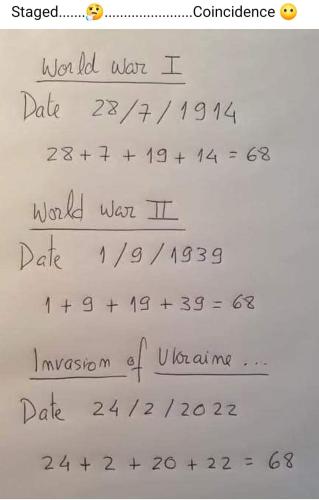 Staged.......🤔........................Coincidence 😶
World War I
Date 28/7/1914
28+7+19+14=68
World War II
Date 1/9/1939
1+9+19+39=68
Invasion of Ukraine...
Date 24/2/2022
24+2+20+22=68